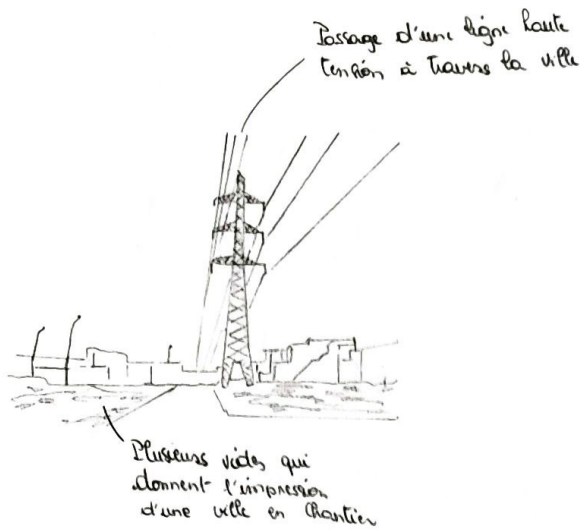 Passage d'une ligne haute
tension à travers la ville
Plusieurs vides qui
donnent l'impression
d'une ville en chantier